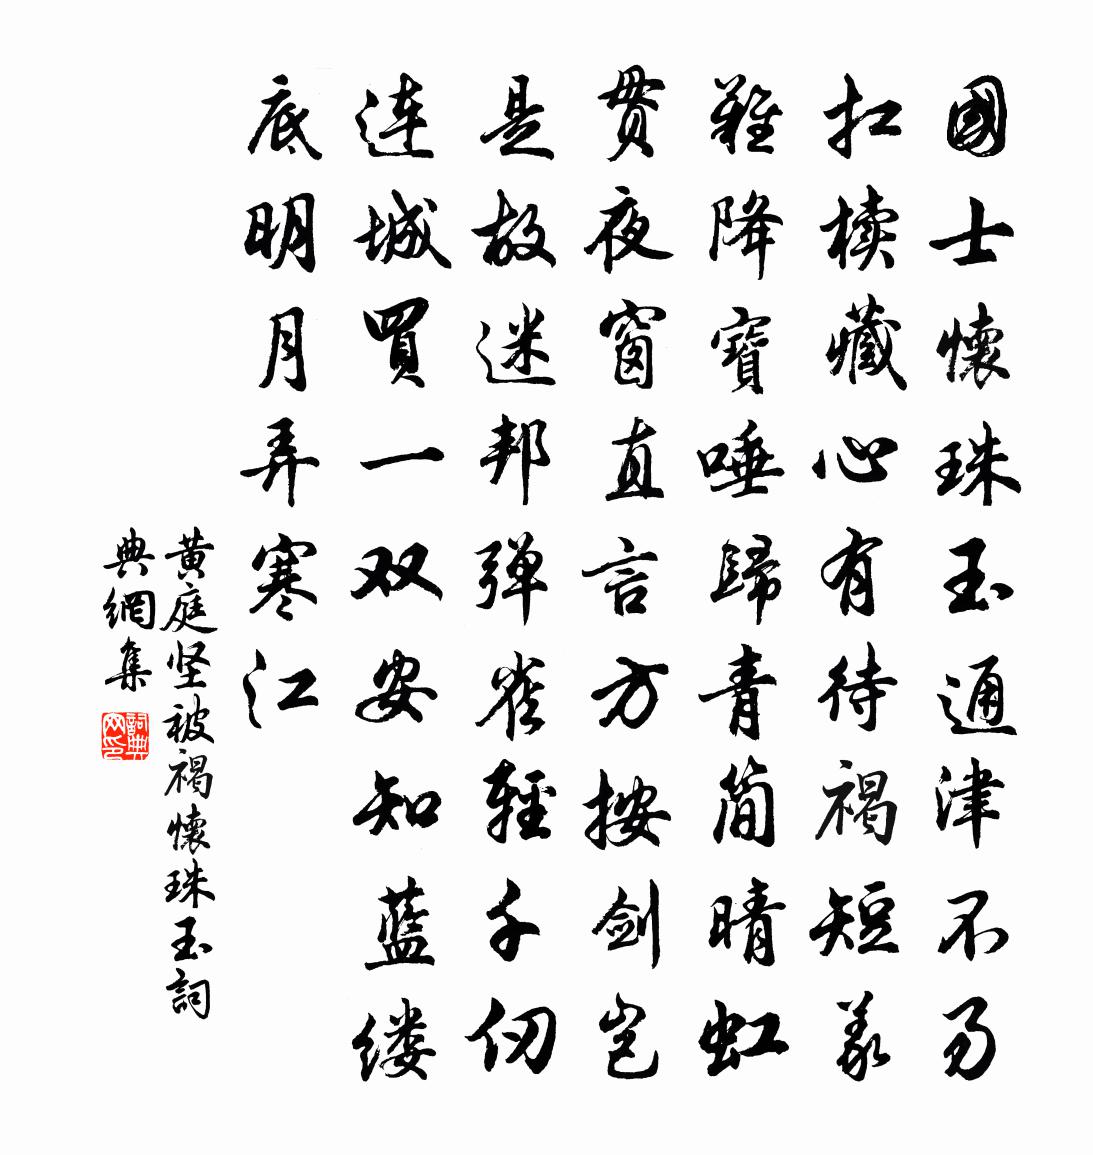 國士懷珠玉通津不易
扛櫝藏心有待褐短義
難降寶唾歸青簡晴虹
贯夜窗直言方按剑岂
是故迷邦弹雀輕千仞
连城買一双安知藍缕
底明月弄寒江
黄庭坚被褐懷珠玉詞
典網集
詞典网印